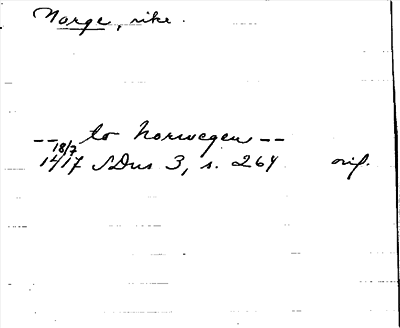 Norge, rike.
-- to Norwegen --
18/7
1417 SDns 3, s. 264 orig.